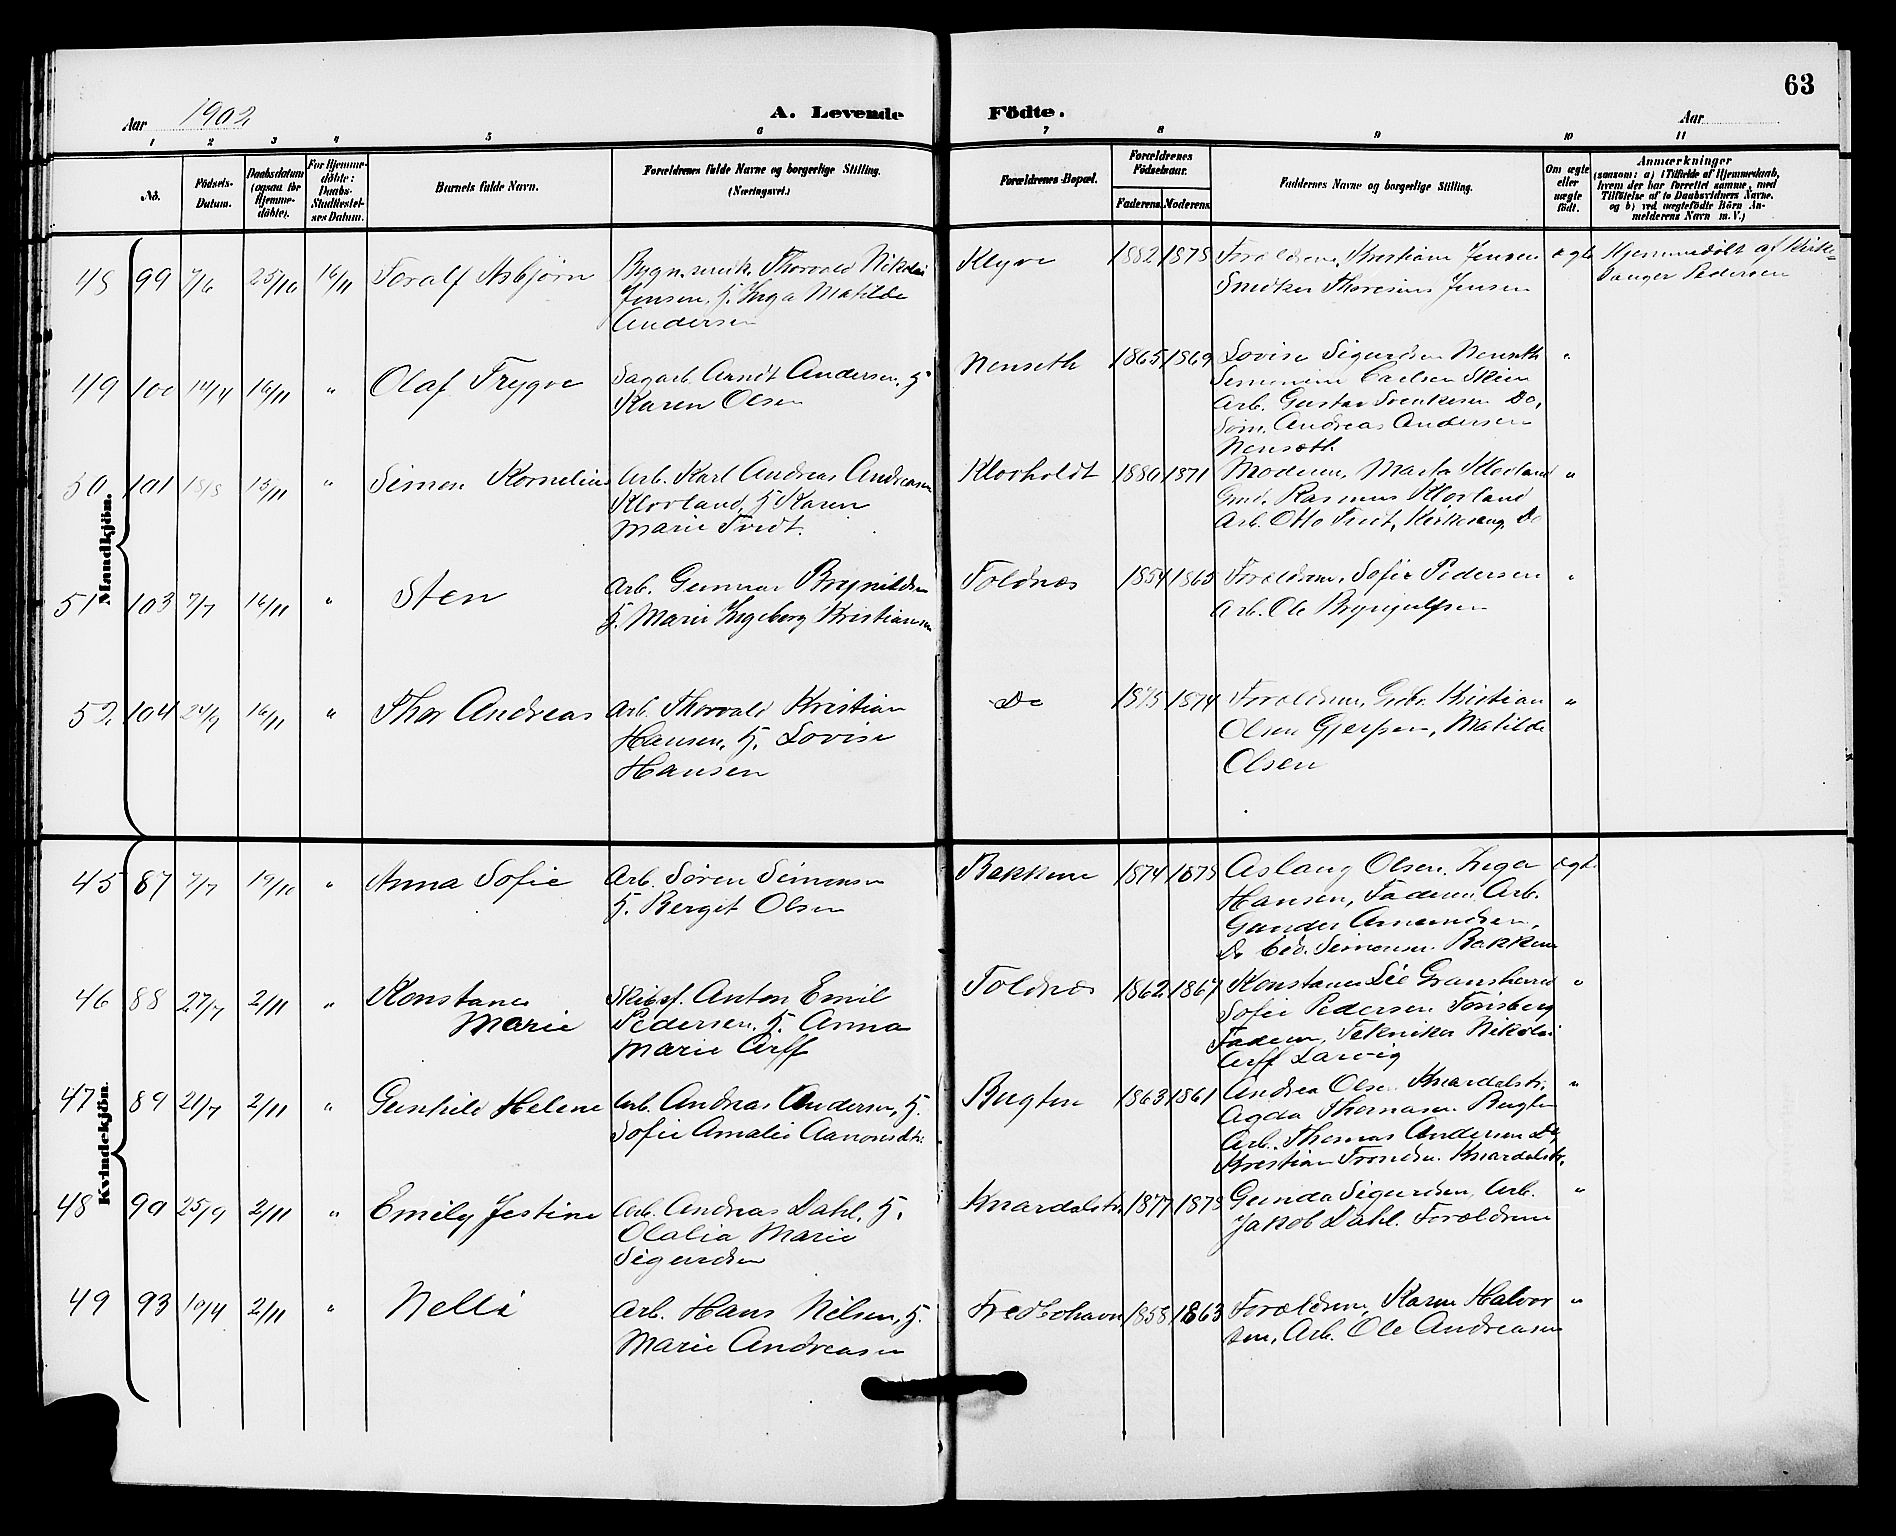 63
Aar 1902 A. Levende Födte. Aar
1 2 3 4 5 6 7 8 9 10 11
No. Födsels-Datum. Daabsdatum (ogsaa for Hjemmedöbte). For Hjemmedöbte: Daabs-Stadfæstelses Datum. Barnets fulde Navn. Forældrenes fulde Navne og borgerlige Stilling. (Næringsvei.) Forældrenes Bopæl. Forældrenes Födselsaar. Faderens. Moderens. Faddernes Navne og borgerlige Stilling. Om ægte eller uægte födt. Anmærkninger (saasom: a) i Tilfælde af Hjemmedaab, hvem der har forrettet samme, med Tilföielse af to Daabsvidners Navne, og b) ved uægtefödte Börn Anmelderens Navn m. V.)
Mandkjön.
48 99 7/6 25/10 16/11 Toralf Asbjørn Bygn.snek. Thorvald Nikolai Klyve 1882 1878 Forældrene, Kristiane Jensen ægte Hjemmedøbt af Kirke-
Jensen, H. Inga Matilde Snedker Thoresius Jensen sanger Pedersen
Andersen
49 100 14/4 16/11 " Olaf Trygve Sagarb. Arndt Andersen, H. Nenseth 1865 1869 Lovise Sigurdsen Nenseth "
Karen Olsen Carlsen Skien
Arb. Gustav Svenkesen Do,
Andreas Andersen
Nenseth
50 101 18/8 16/11 " Simon Kornelius Arb. Karl Andreas Andreasen Klovholdt 1880 1871 Moderen, Marta Klovland "
Klovland, H. Karen Gmd. Rasmus Klovland
Marie Tvedt. Arb. Otto Tvedt, Kirkesang. Do
51 103 7/7 16/11 " Sten Arb. Gunnar Brynildsen Toldnæs 1854 1865 Forældrene, Sofie Pedersen "
H. Marie Ingeborg Kristiansen Arb. Ole Brynjulfsen
52 104 24/9 16/11 " Thor Andreas Arb. Thorvald Kristian Do 1875 1874 Forældrene, Kristian "
Hansen, H. Lovise Olsen Gjerpen, Matilde
Hansen Olsen
Kvindekjön.
45 87 7/7 19/10 " Anna Sofie Arb. Søren Simonsen Bakkene 1874 1879 Aslaug Olsen, Inga ægte
H. Berget Olsen Hansen, Faderen, Arb.
Gunder Amundsen,
Do Simonsen Bakken
46 88 27/7 2/11 " Konstance Skibsf. Anton Emil Toldnæs 1862 1867 Konstance Lie Gransherred "
Marie Pedersen, H. Anna Sofie Pedersen Tønsberg
Marie Arff Faderen, Tekniker Nikolai
Arff Larvig
47 89 21/7 2/11 " Gunhild Helene Arb. Andreas Andersen, H. Bugten 1863 1861 Andrea Olsen Knardalstr. "
Sofie Amalie Aanonsdtr. Agda Thomasen Bugten
Arb. Thomas Andersen Do,
Kristian Trondsen Knardalstr.
48 90 25/9 2/11 " Emily Jestine Arb. Andreas Dahl, H. Knardalstr. 1877 1879 Gunda Sigurdsen, Arb. "
Olalia Marie Jakob Dahl. Forældrene
Sigurdsen
49 93 10/4 2/11 " Nelli Arb. Hans Nilsen, H. Fredsohavn 1858 1863 Forældrene, Karen Halvor "
Marie Andreasen sen, Arb. Ole Andreasen